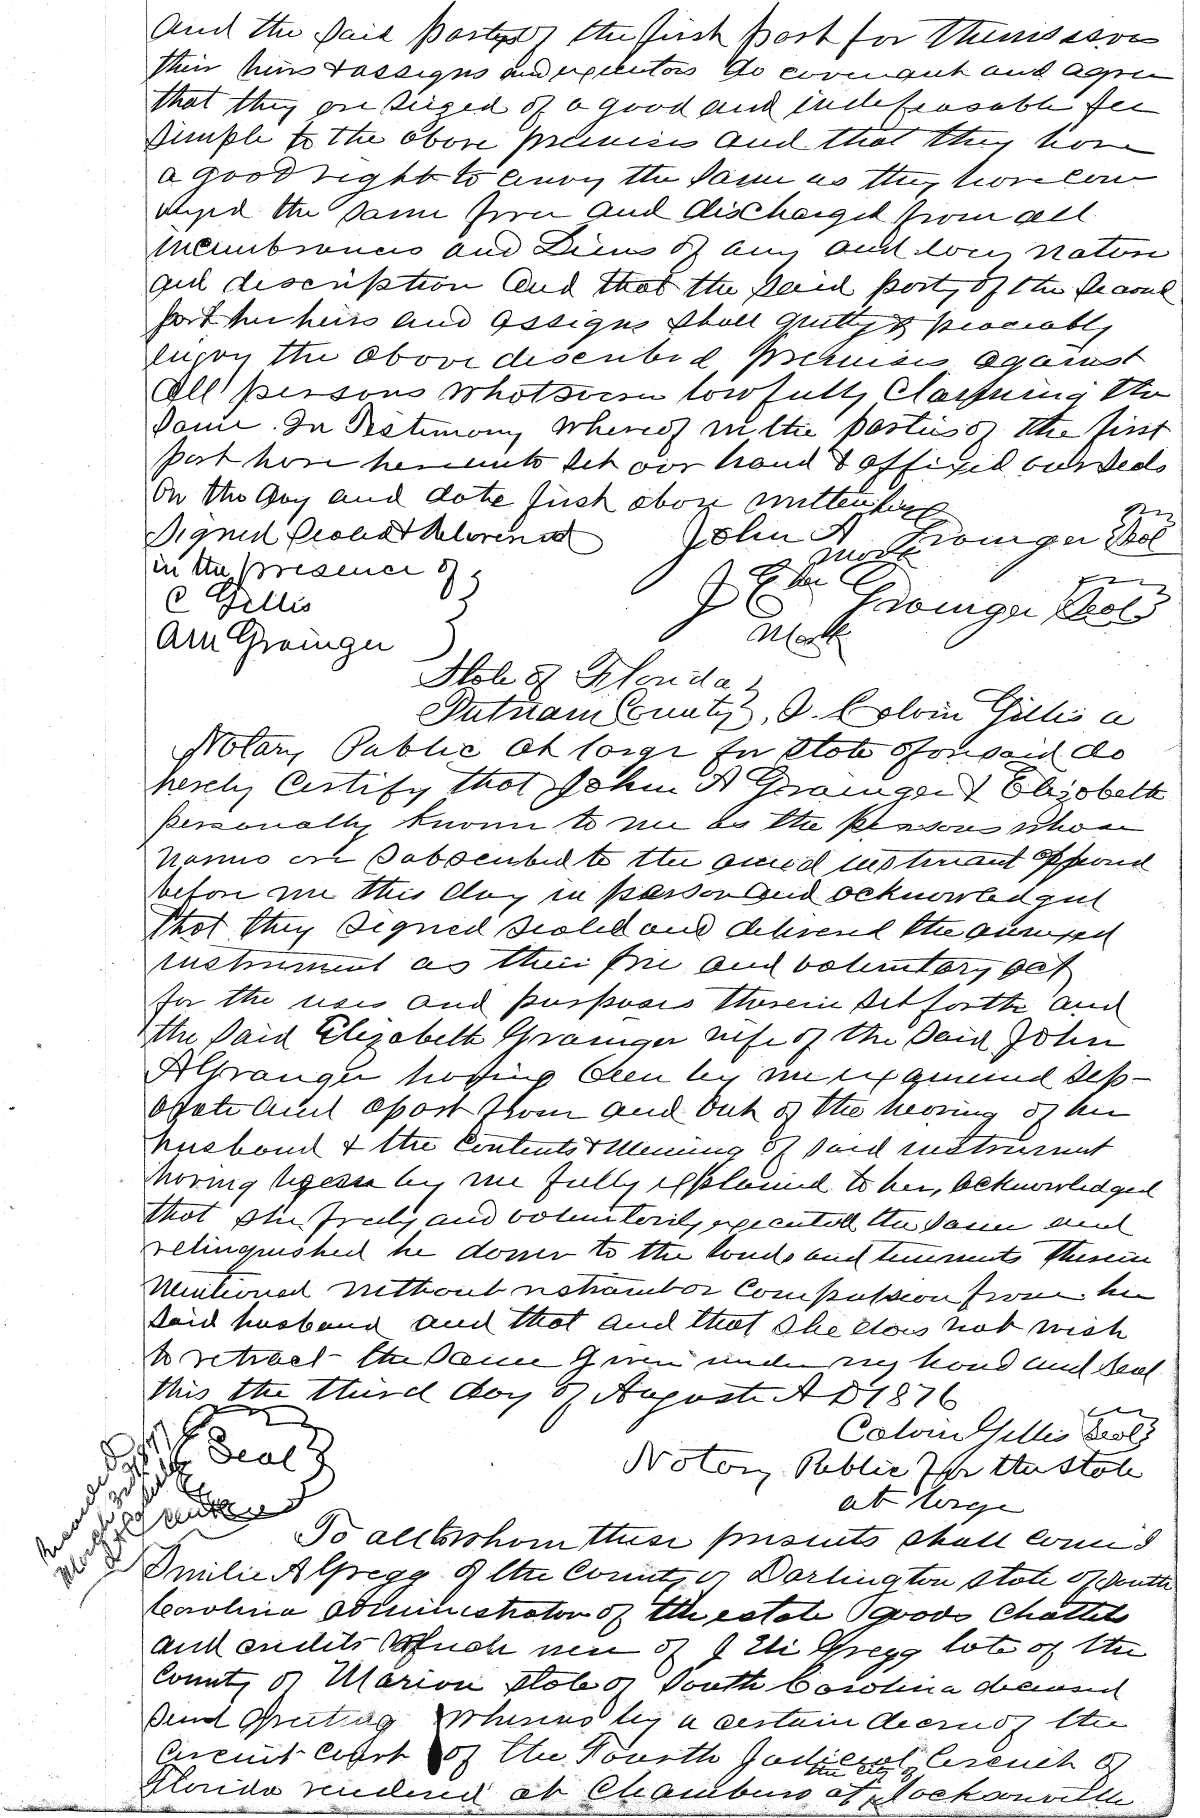 And the said partys of the first part for themselves
their heirs & assigns and executors do covenant and agree
that they are siezed of a good and indefeasable fee
simple to the above premises and that they have
a good right to convey the same as they have con-
veyed the same free and discharged from all
incumbrances and Liens of any and every nature
and description And that the said party of the second
part her heirs and assigns shall quietly & peaceably
enjoy the above described premises against
all persons whatsoever lawfully Claiming the
same. In Testimony whereof we the parties of the first
part have hereunto set our hand & affixed our seals
on the day and date first above written his
Signed Sealed & Delivered John A Grainger Seal
in the presence of mark
C Gillis J E her Grainger Seal
Am Grainger mark
State of Florida
Putnam County, I. Calvin Gillis a
Notary Public at large for state aforesaid do
hereby Certify that John A Grainger & Elizabeth
personally known to me as the persons whose
names are subscribed to the instrument appeared
before me this day in person and acknowledged
that they signed sealed and delivered the annexed
instrument as their free and voluntary act
for the uses and purposes therein set forth and
the said Elizabeth Grainger wife of the said John
A Granger having been by me examined sep-
arate and apart from and out of the hearing of her
husband & the contents & Meaning of said instrument
having been by me fully explained to her, acknowledged
that she freely and voluntarily executed the same and
relinquished he dower to the lands and tenements therein
Mentioned without restraint or compulsion from her
said husband and that and that she does not wish
to retract the same Given under my hand and seal
this the third day of August A D 1876
Calvin Gillis Seal
Seal
Notary Public for the state
at large
March 3rd 1877
To all to whom these presents shall come I
Smilie A Gregg of the County of Darlington state of South
Carolina administrator of the estate goods chattels
and credits which were of J Eli Gregg late of the
County of Marion state of South Carolina deceased
send Greeting Whereas by a certain decree of the
Circuit Court of the Fourth Judicial Circuit of
the city of
Florida rendered at Chambers at Jacksonville